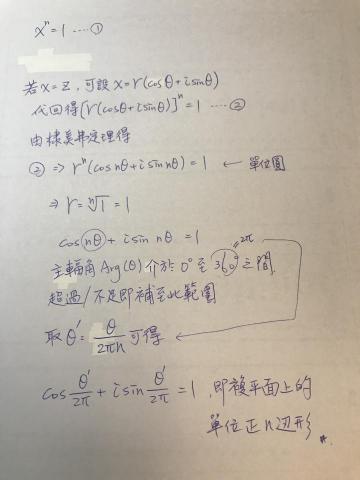 xⁿ = 1 ‥‥ ①
若 x = z, 可設 x = r(cosθ + i sinθ)
代回得 [r(cosθ + i sinθ)]ⁿ = 1 ‥‥ ②
由棣美弗定理得
② ⇒ rⁿ(cos nθ + i sin nθ) = 1 ← 單位圓
⇒ r = ⁿ√1 = 1
cos nθ + i sin nθ = 1
主輻角 Arg(θ) 介於 0° 至 360° 之間 = 2π
超過/不足即補至此範圍
取 θ' = θ/2πn 可得
cos θ'/2π + i sin θ'/2π = 1, 即複平面上的
單位正 n 边形 #